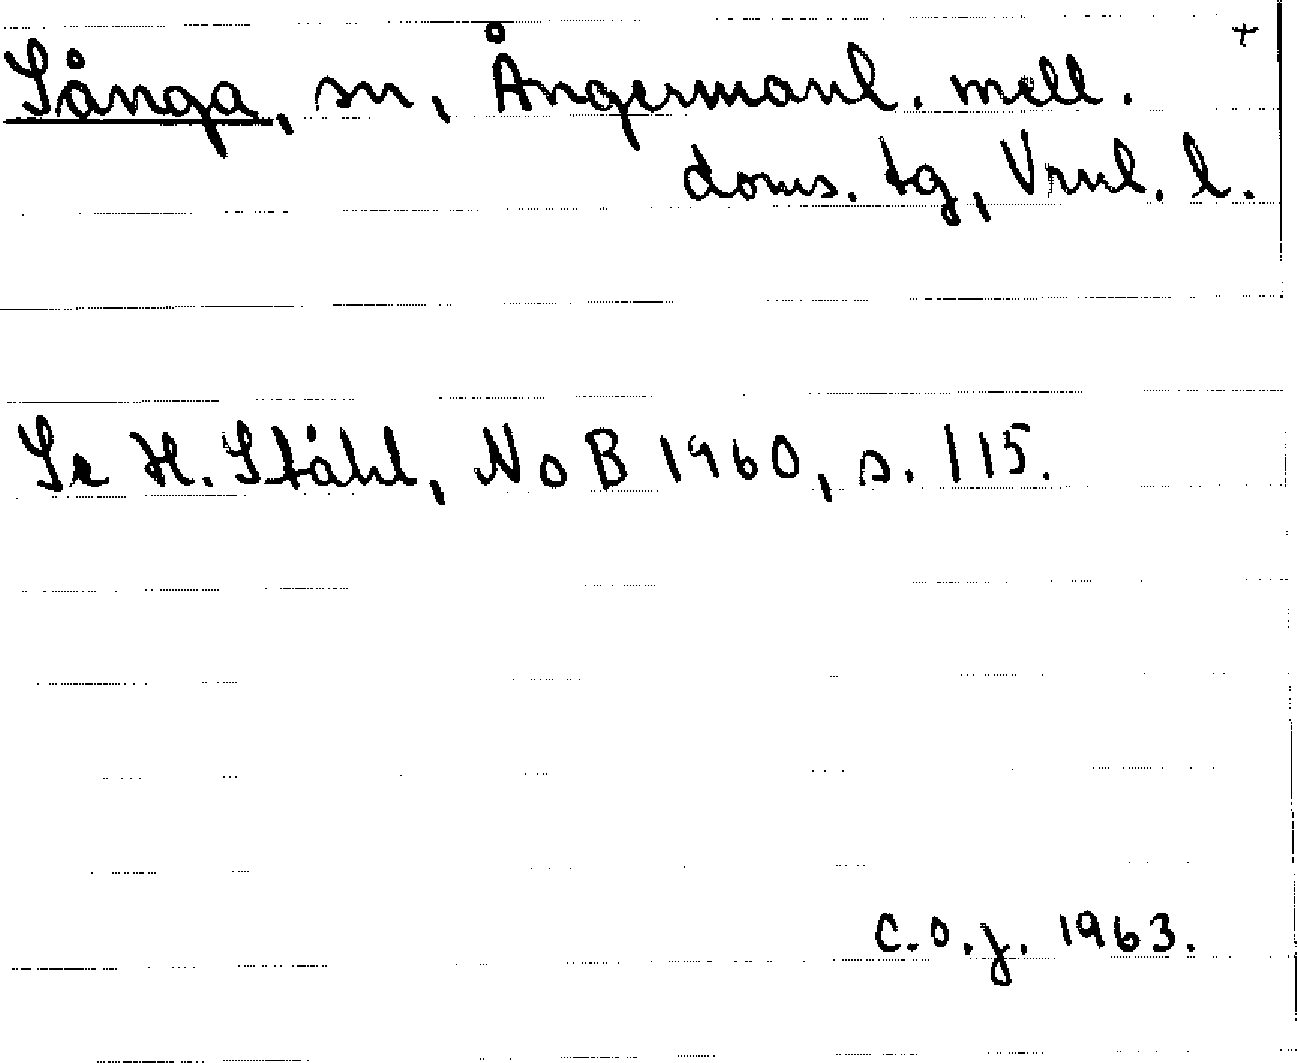 +
Sånga, sn, Ångermanl. mell.
doms. tg, Vrnl. l.
Se H. Ståhl, NoB 1960, s. 115.
C.O.J. 1963.